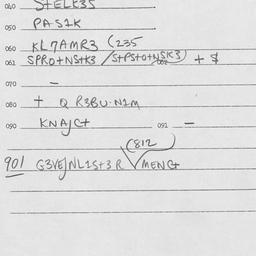 040 StELE3S
050 PAS1K
060 KL7AMR3 (235
061 SPRO+NS+K3 /S+PS+O+NSK3) + $
070 –
080 + Q R3BU·N1M
090 KNAJC+ 091 –
(812
901 G3VEJNL1S+3R MENC+